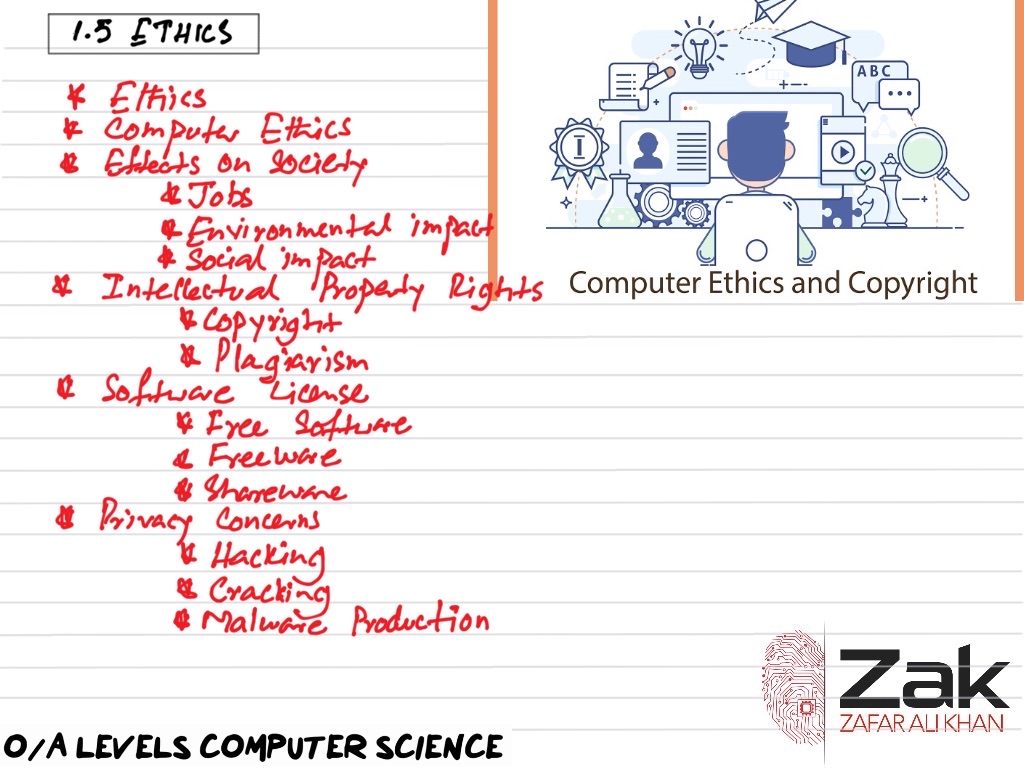 1.5 ETHICS
* Ethics
* Computer Ethics
* Effects on Society
* Jobs
* Environmental impact
* Social impact
* Intellectual Property Rights
* Copyright
* Plagiarism
* Software License
* Free Software
* Freeware
* Shareware
* Privacy Concerns
* Hacking
* Cracking
* Malware Production
ABC
I
Computer Ethics and Copyright
Zak
ZAFAR ALI KHAN
O/A LEVELS COMPUTER SCIENCE